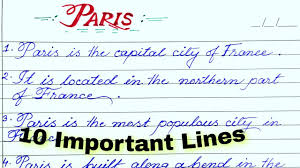 PARIS
1. Paris is the capital city of France.
2. It is located in the northern part
of France.
3. Paris is the most populous city in
France
10 Important Lines
4. Paris is built along a bend in the